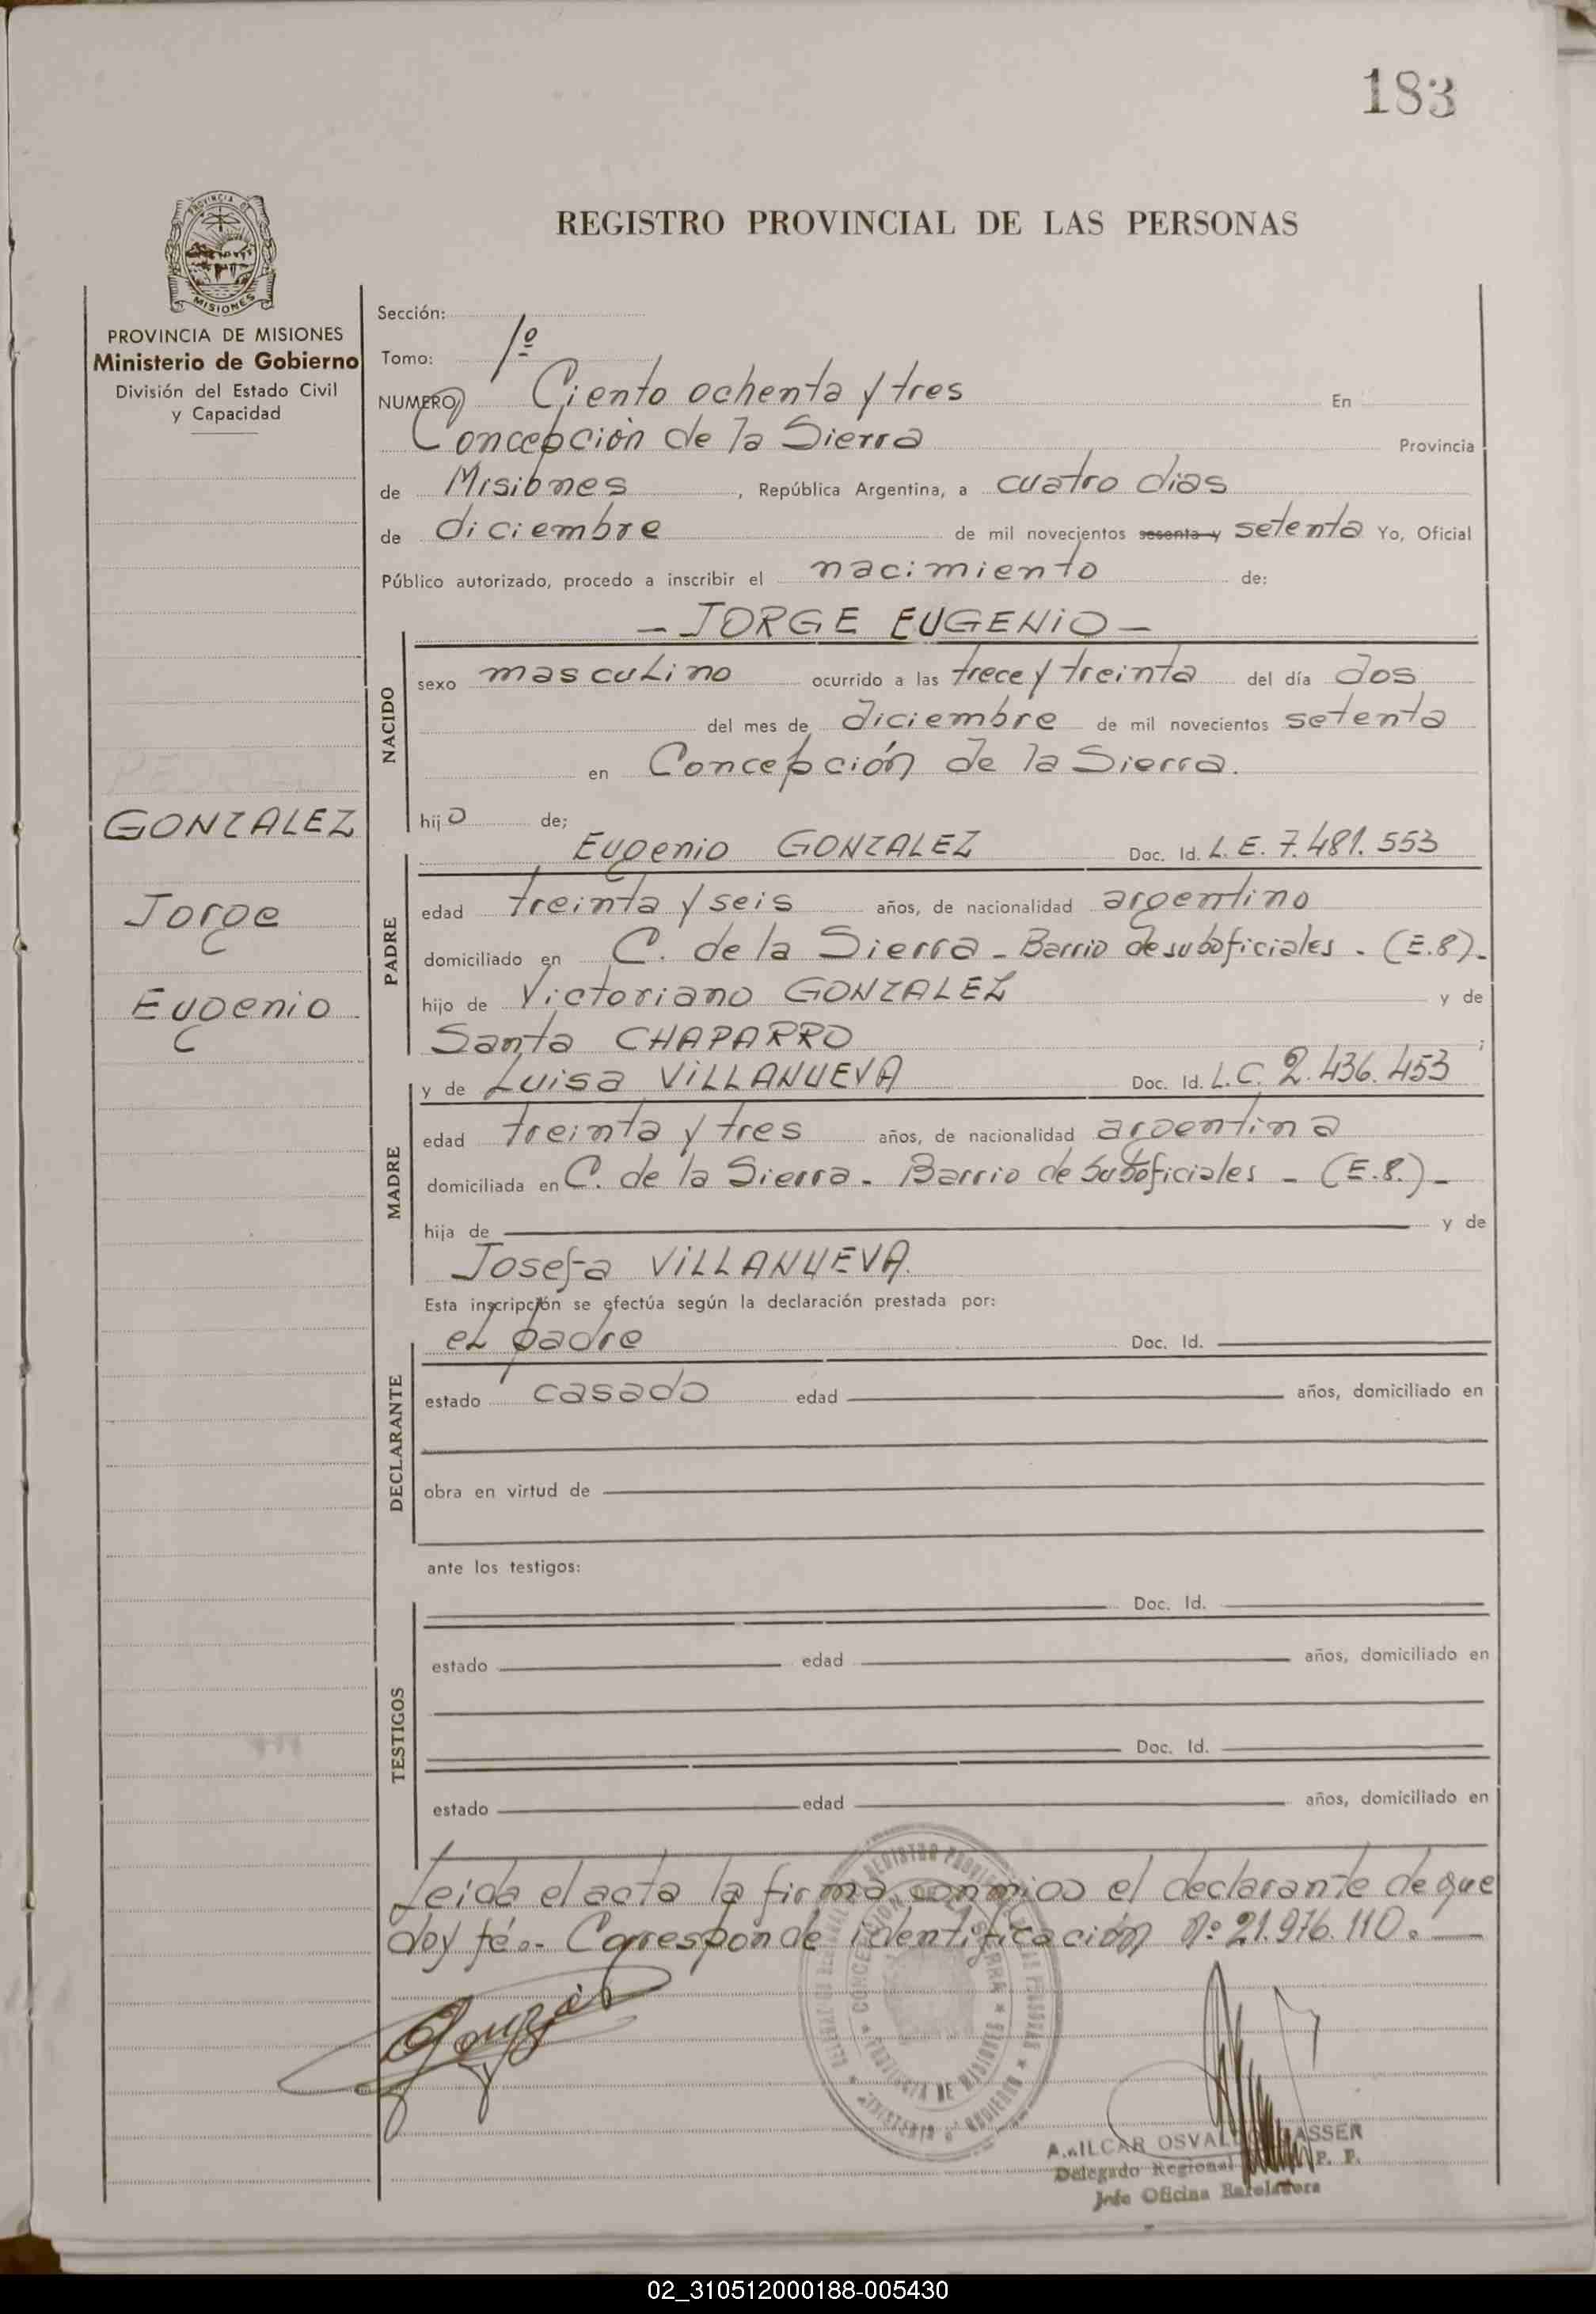 183
REGISTRO PROVINCIAL DE LAS PERSONAS
PROVINCIA DE
MISIONES
PROVINCIA DE MISIONES
Ministerio de Gobierno
División del Estado Civil
y Capacidad
GONZALEZ
Jorge
Eugenio
Sección:
Tomo: 1º
NUMERO Ciento ochenta y tres En
Concepción de la Sierra Provincia
de Misiones, República Argentina, a cuatro dias
de diciembre de mil novecientos sesenta y setenta Yo, Oficial
Público autorizado, procedo a inscribir el nacimiento de:
- JORGE EUGENIO -
NACIDO
sexo masculino ocurrido a las trece y treinta del día dos
del mes de diciembre de mil novecientos setenta
en Concepción de la Sierra.
hijo de;
Eugenio GONZALEZ Doc. Id. L. E. 7.481.553
PADRE
edad treinta y seis años, de nacionalidad argentino
domiciliado en C. de la Sierra - Barrio de suboficiales - (E.8).-
hijo de Victoriano GONZALEZ y de
Santa CHAPARRO ;
y de Luisa VILLANUEVA Doc. Id. L.C. 2.436.453
MADRE
edad treinta y tres años, de nacionalidad argentina
domiciliada en C. de la Sierra - Barrio de Suboficiales - (E.8.) -
hija de y de
Josefa VILLANUEVA.
Esta inscripción se efectúa según la declaración prestada por:
el padre Doc. Id.
DECLARANTE
estado casado edad años, domiciliado en
obra en virtud de
ante los testigos:
TESTIGOS
Doc. Id.
estado edad años, domiciliado en
Doc. Id.
estado edad años, domiciliado en
Leida el acta la firma conmigo el declarante de que
doy fé.- Corresponde identificación Nº 21.976.110.-
CONCEPCION DE LA SIERRA
PROVINCIA DE MISIONES
OSVALDO
Delegado Regional R. P. P.
Jefe Oficina
02_310512000188-005430